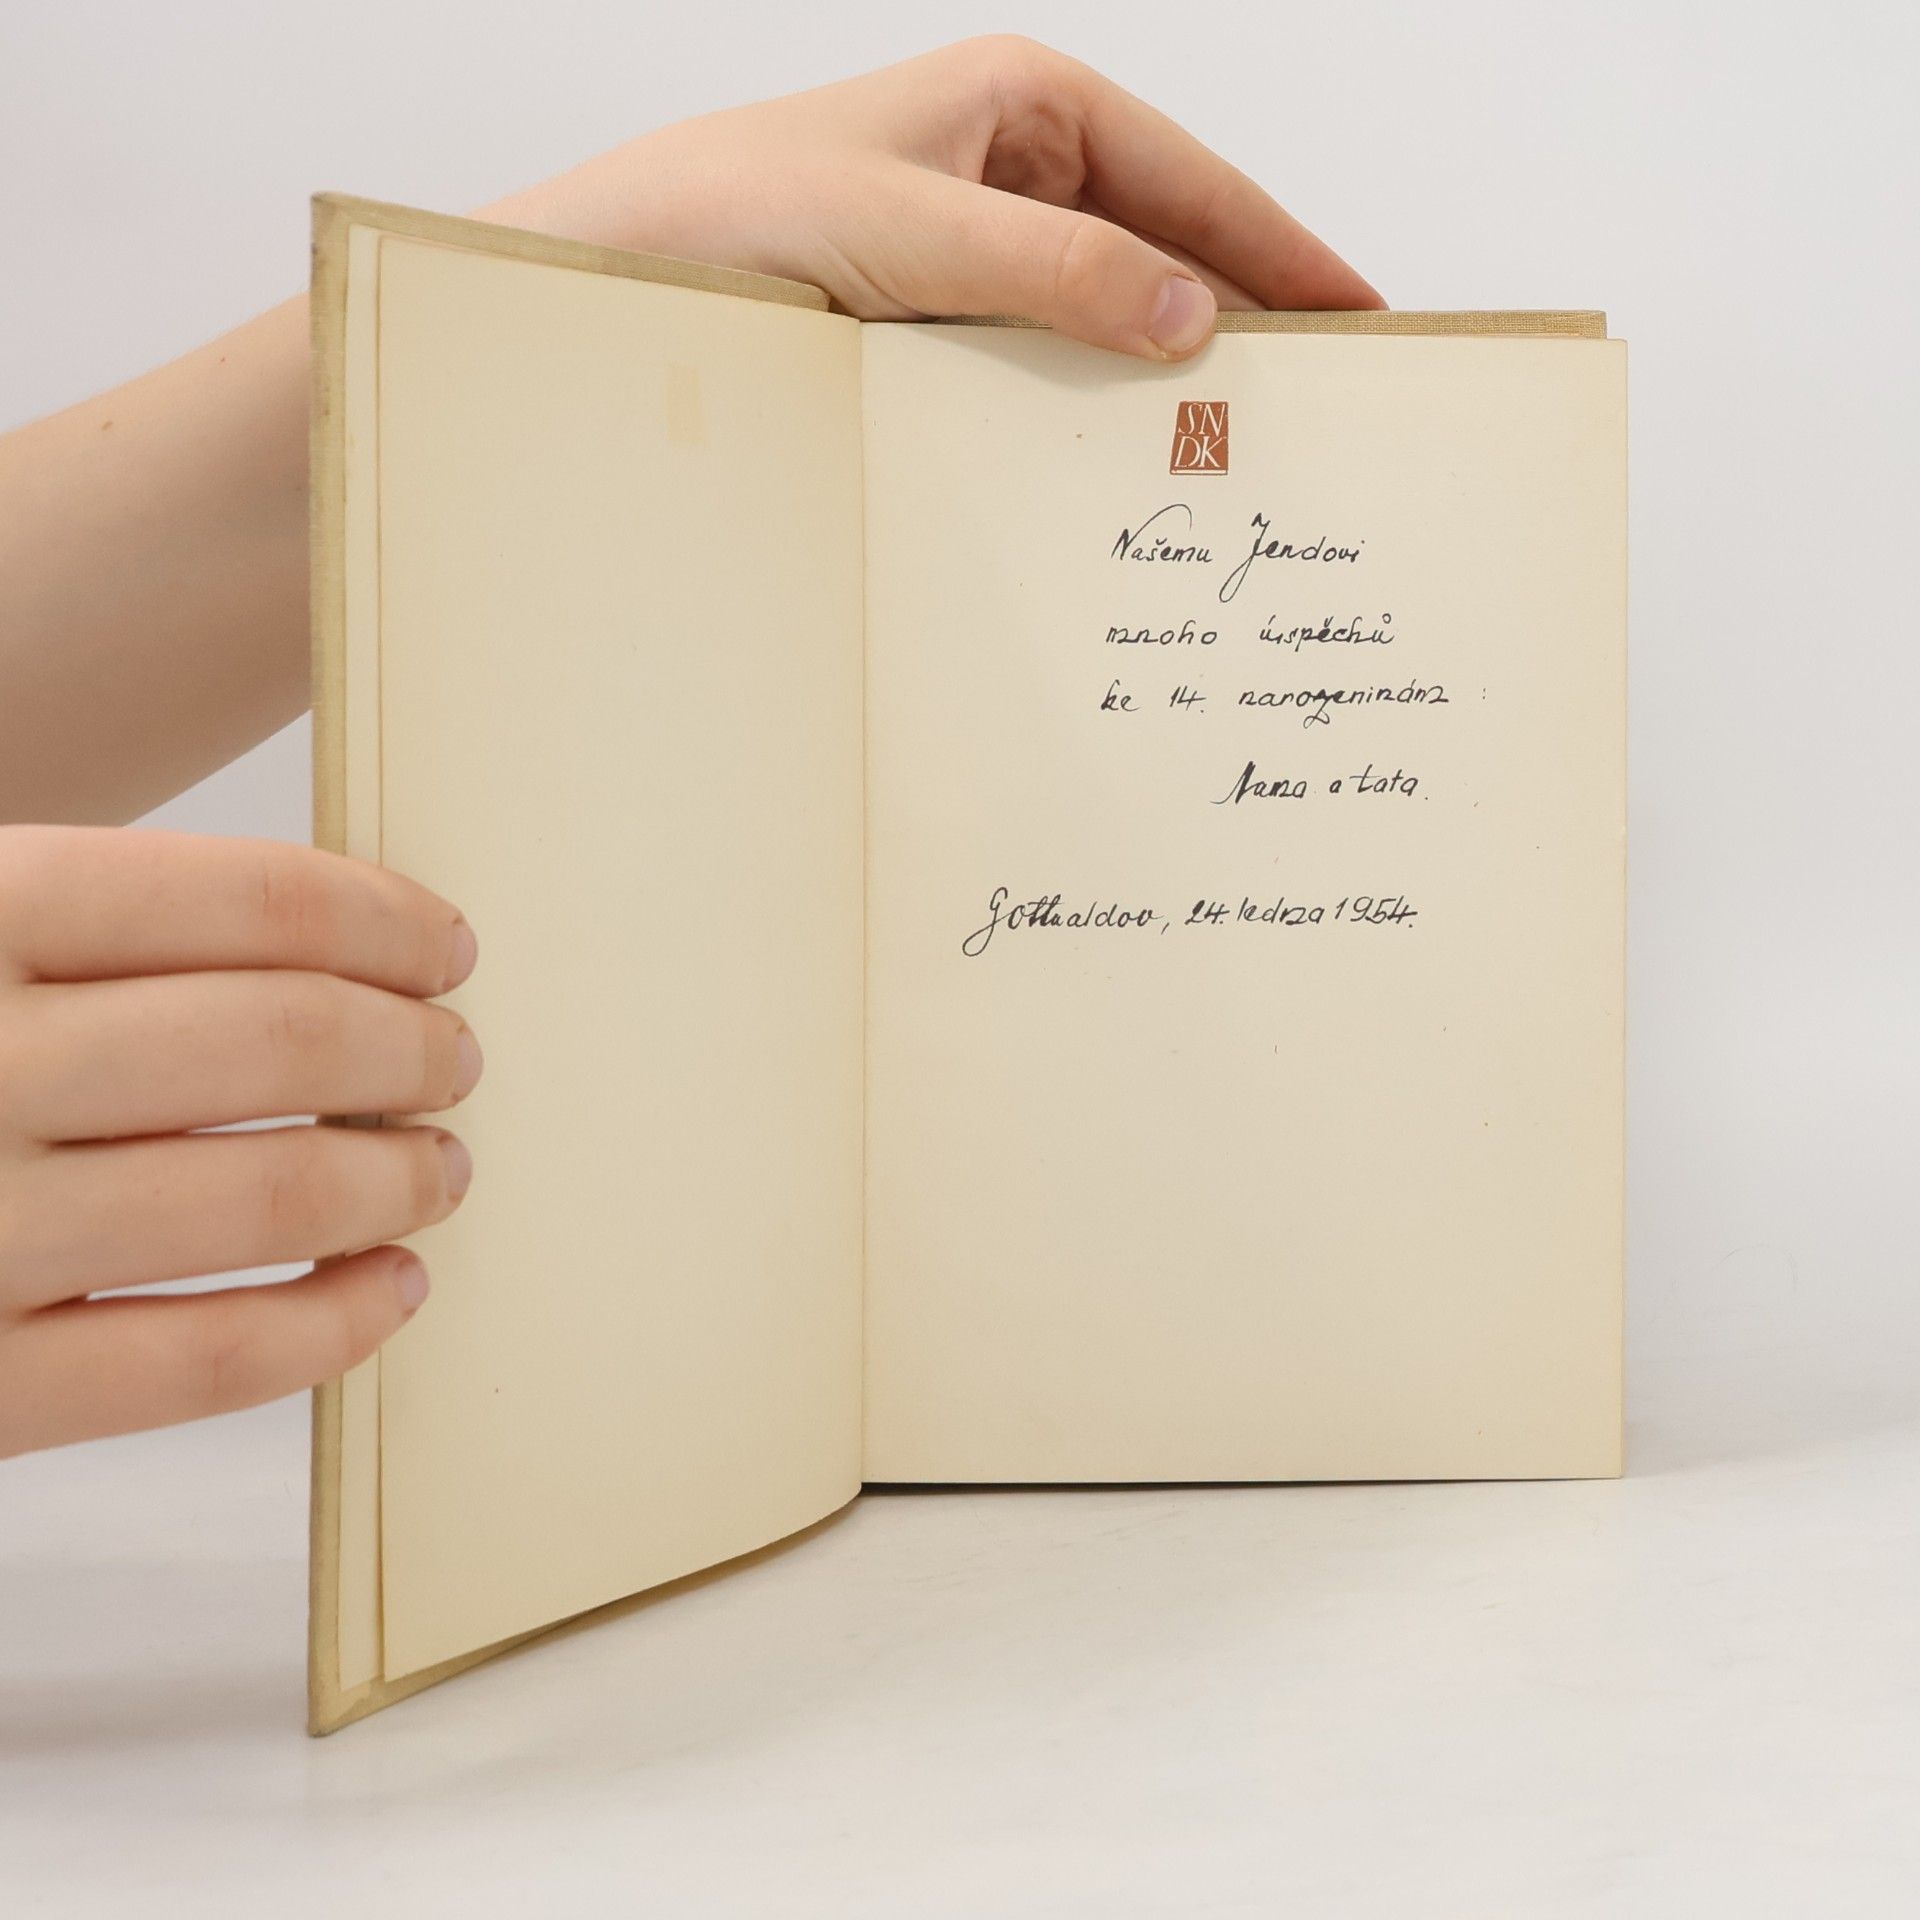 SN
DK
Našemu Jendovi
mnoho úspěchů
ke 14. narozeninám :
Mama a tata.
Gottwaldov, 24. ledna 1954.